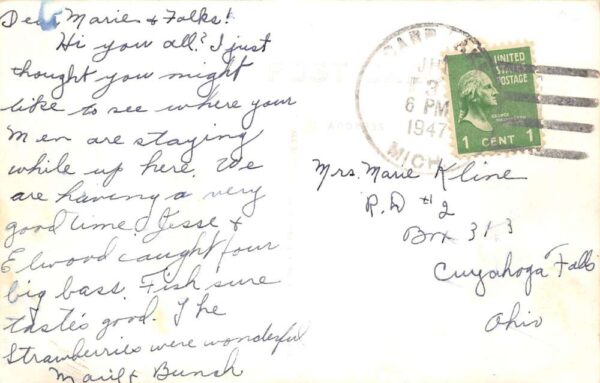 Dear Marie & Folks!
Hi you all? I just
thought you might
like to see where your
men are staying
while up here. We
are having a very
good time. Jesse &
Elwood caught four
big bass. Fish sure
tastes good. The
Strawberries were wonderful
& Bunch
POST CARD
ADDRESS
6 PM
1947
MICH
UNITED
STATES
POSTAGE
1 CENT 1
Mrs. Marie Kline
R.D #2
Box 313
Cuyahoga Falls
Ohio